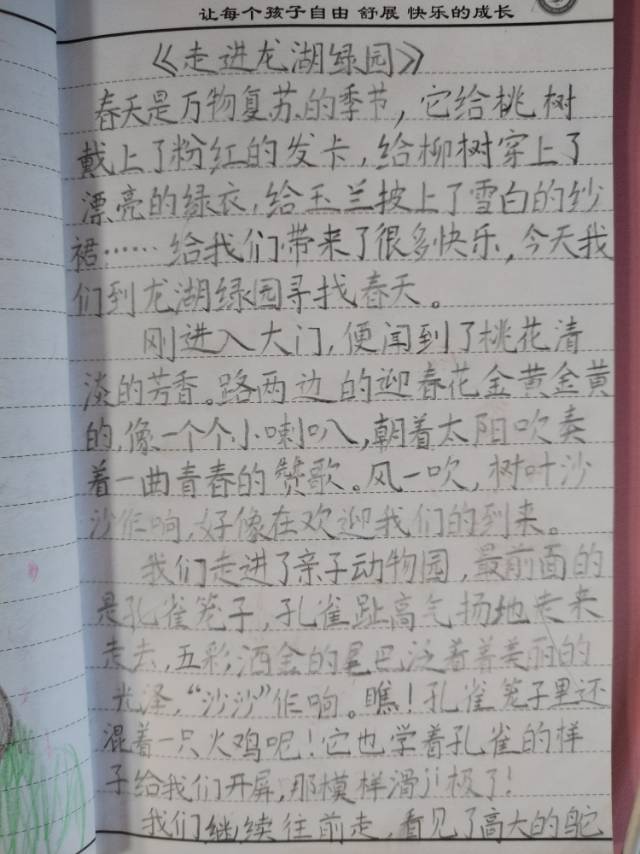 让每个孩子自由 舒展 快乐的成长
《走进龙湖绿园》
春天是万物复苏的季节，它给桃树
戴上了粉红的发卡，给柳树穿上了
漂亮的绿衣，给玉兰披上了雪白的纱
裙……给我们带来了很多快乐，今天我
们到龙湖绿园寻找春天。
刚进入大门，便闻到了桃花清
淡的芳香。路两边的迎春花金黄金黄
的，像一个个小喇叭，朝着太阳吹奏
着一曲青春的赞歌。风一吹，树叶沙
沙作响，好像在欢迎我们的到来。
我们走进了亲子动物园，最前面的
是孔雀笼子，孔雀趾高气扬地走来
走去，五彩洒金的尾巴泛着着美丽的
光泽，“沙沙”作响。瞧！孔雀笼子里还
混着一只火鸡呢！它也学着孔雀的样
子给我们开屏，那模样滑jī极了！
我们继续往前走，看见了高大的鸵